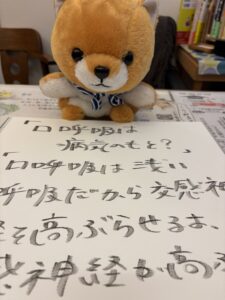 「口呼吸は
病気のもと?」
「口呼吸は浅い
呼吸だから交感神
経を高ぶらせるよ、
感神経が高ぶ